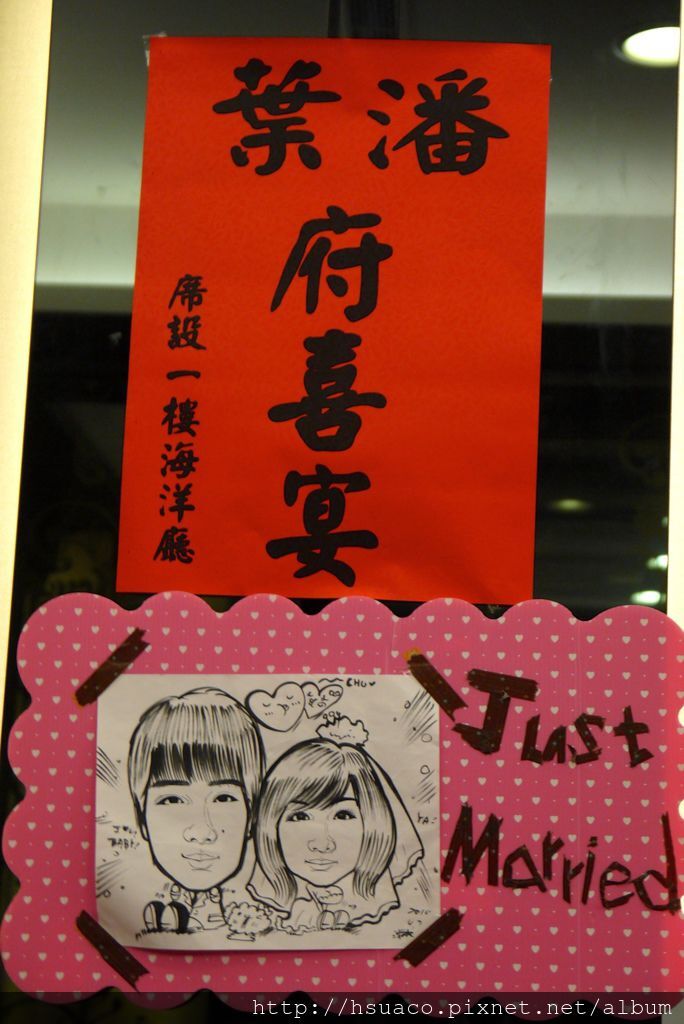 潘
葉
府喜宴
席設一樓海洋廳
CHU
2010
Just
Married
http://hsuaco.pixnet.net/album